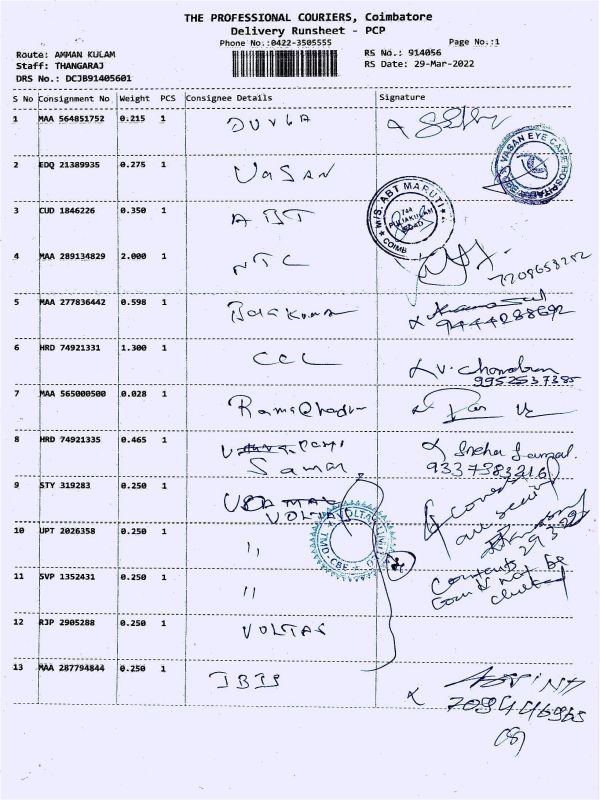 THE PROFESSIONAL COURIERS, Coimbatore
Delivery Runsheet - PCP
Phone No.:0422-3505555
Page No.:1
Route: AMMAN KULAM
RS No.: 914056
Staff: THANGARAJ
RS Date: 29-Mar-2022
DRS No.: DCJB91405601
S No Consignment No Weight PCS Consignee Details Signature
1 MAA 564851752 0.215 1
VASAN EYE CARE HOSPITAL
2 EDQ 21389935 0.275 1 VASAN
M/S. ABT MARUTI
COIMB
3 CUD 1846226 0.350 1 ABT
4 MAA 289134829 2.000 1 NTC
5 MAA 277836442 0.598 1 Balakumar
9444288692
6 HRD 74921331 1.300 1 CCL V. Chandran
9952537385
7 MAA 565000500 0.028 1
8 HRD 74921335 0.465 1 Samal Sneha Samal.
9337383216
9 STY 319283 0.250 1 VOLTAS
10 UPT 2026358 0.250 1 11
Contents
could not be
11 SVP 1352431 0.250 1 11
12 RJP 2905288 0.250 1 VOLTAS
13 MAA 287794844 0.250 1 IBIS
7094446965